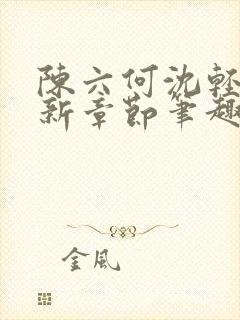 陳六何沈輕
新章節筆趣
金風